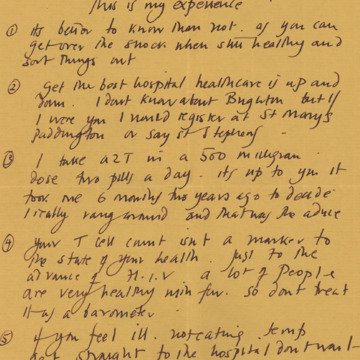 This is my experience
① its better to know than not. as you can
get over the shock when still healthy and
sort things out
② Get the best hospital healthcare is up and
down. I dont know about Brighton but if
I were you I would register at St Marys
Paddington or say St Stephens
③ I take AZT in a 500 milligram
dose two pills a day. its up to you it
took me 6 months two years ago to decide
I really rang around and that was the advice
④ Your T cell count isnt a marker to
the state of your health. just to the
advance of H.I.V a lot of people
are very healthy with few. so dont treat
it as a barometer
⑤ if you feel ill. not eating temp
get straight to the hospital dont wait